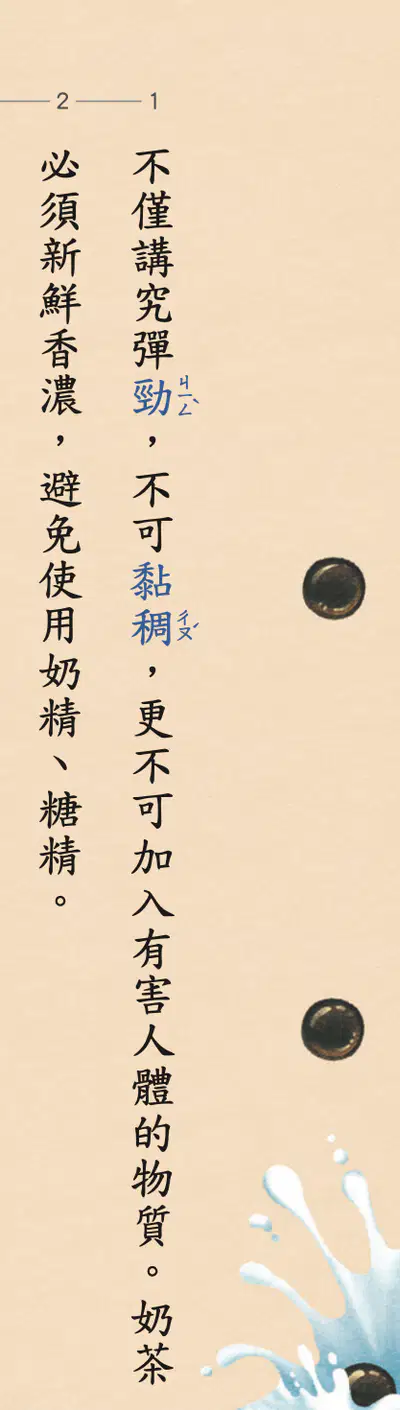 1
不僅講究彈勁ㄐㄧㄥˋ，不可黏稠ㄔㄡˊ，更不可加入有害人體的物質。奶茶
2
必須新鮮香濃，避免使用奶精、糖精。